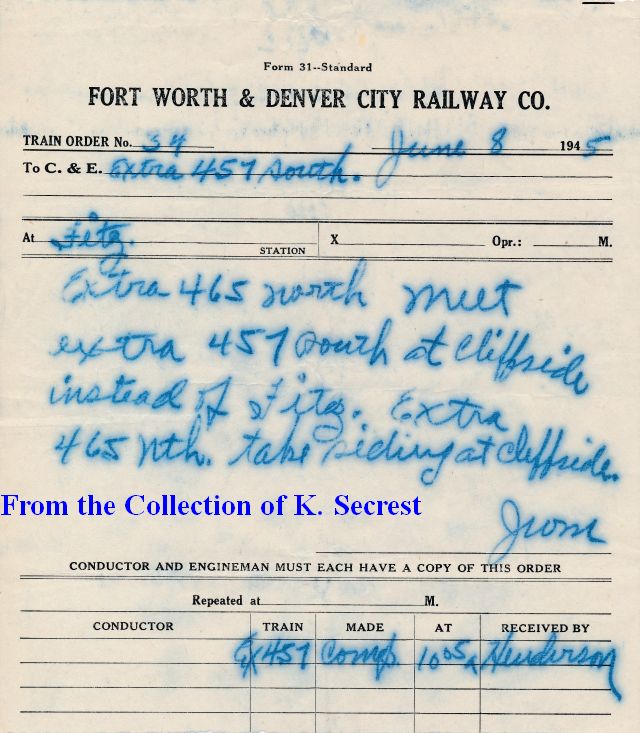 Form 31--Standard
FORT WORTH & DENVER CITY RAILWAY CO.
TRAIN ORDER No. 34 June 8 1945
To C. & E. Extra 457 south.
At Fitz. STATION X Opr.: M.
Extra 465 north meet
extra 457 south at Cliffside
instead of Fitz. Extra
465 Nth. take siding at Cliffside.
From the Collection of K. Secrest
CONDUCTOR AND ENGINEMAN MUST EACH HAVE A COPY OF THIS ORDER
Repeated at M.
CONDUCTOR TRAIN MADE AT RECEIVED BY
Ex 457 Comp. 1005A Henderson